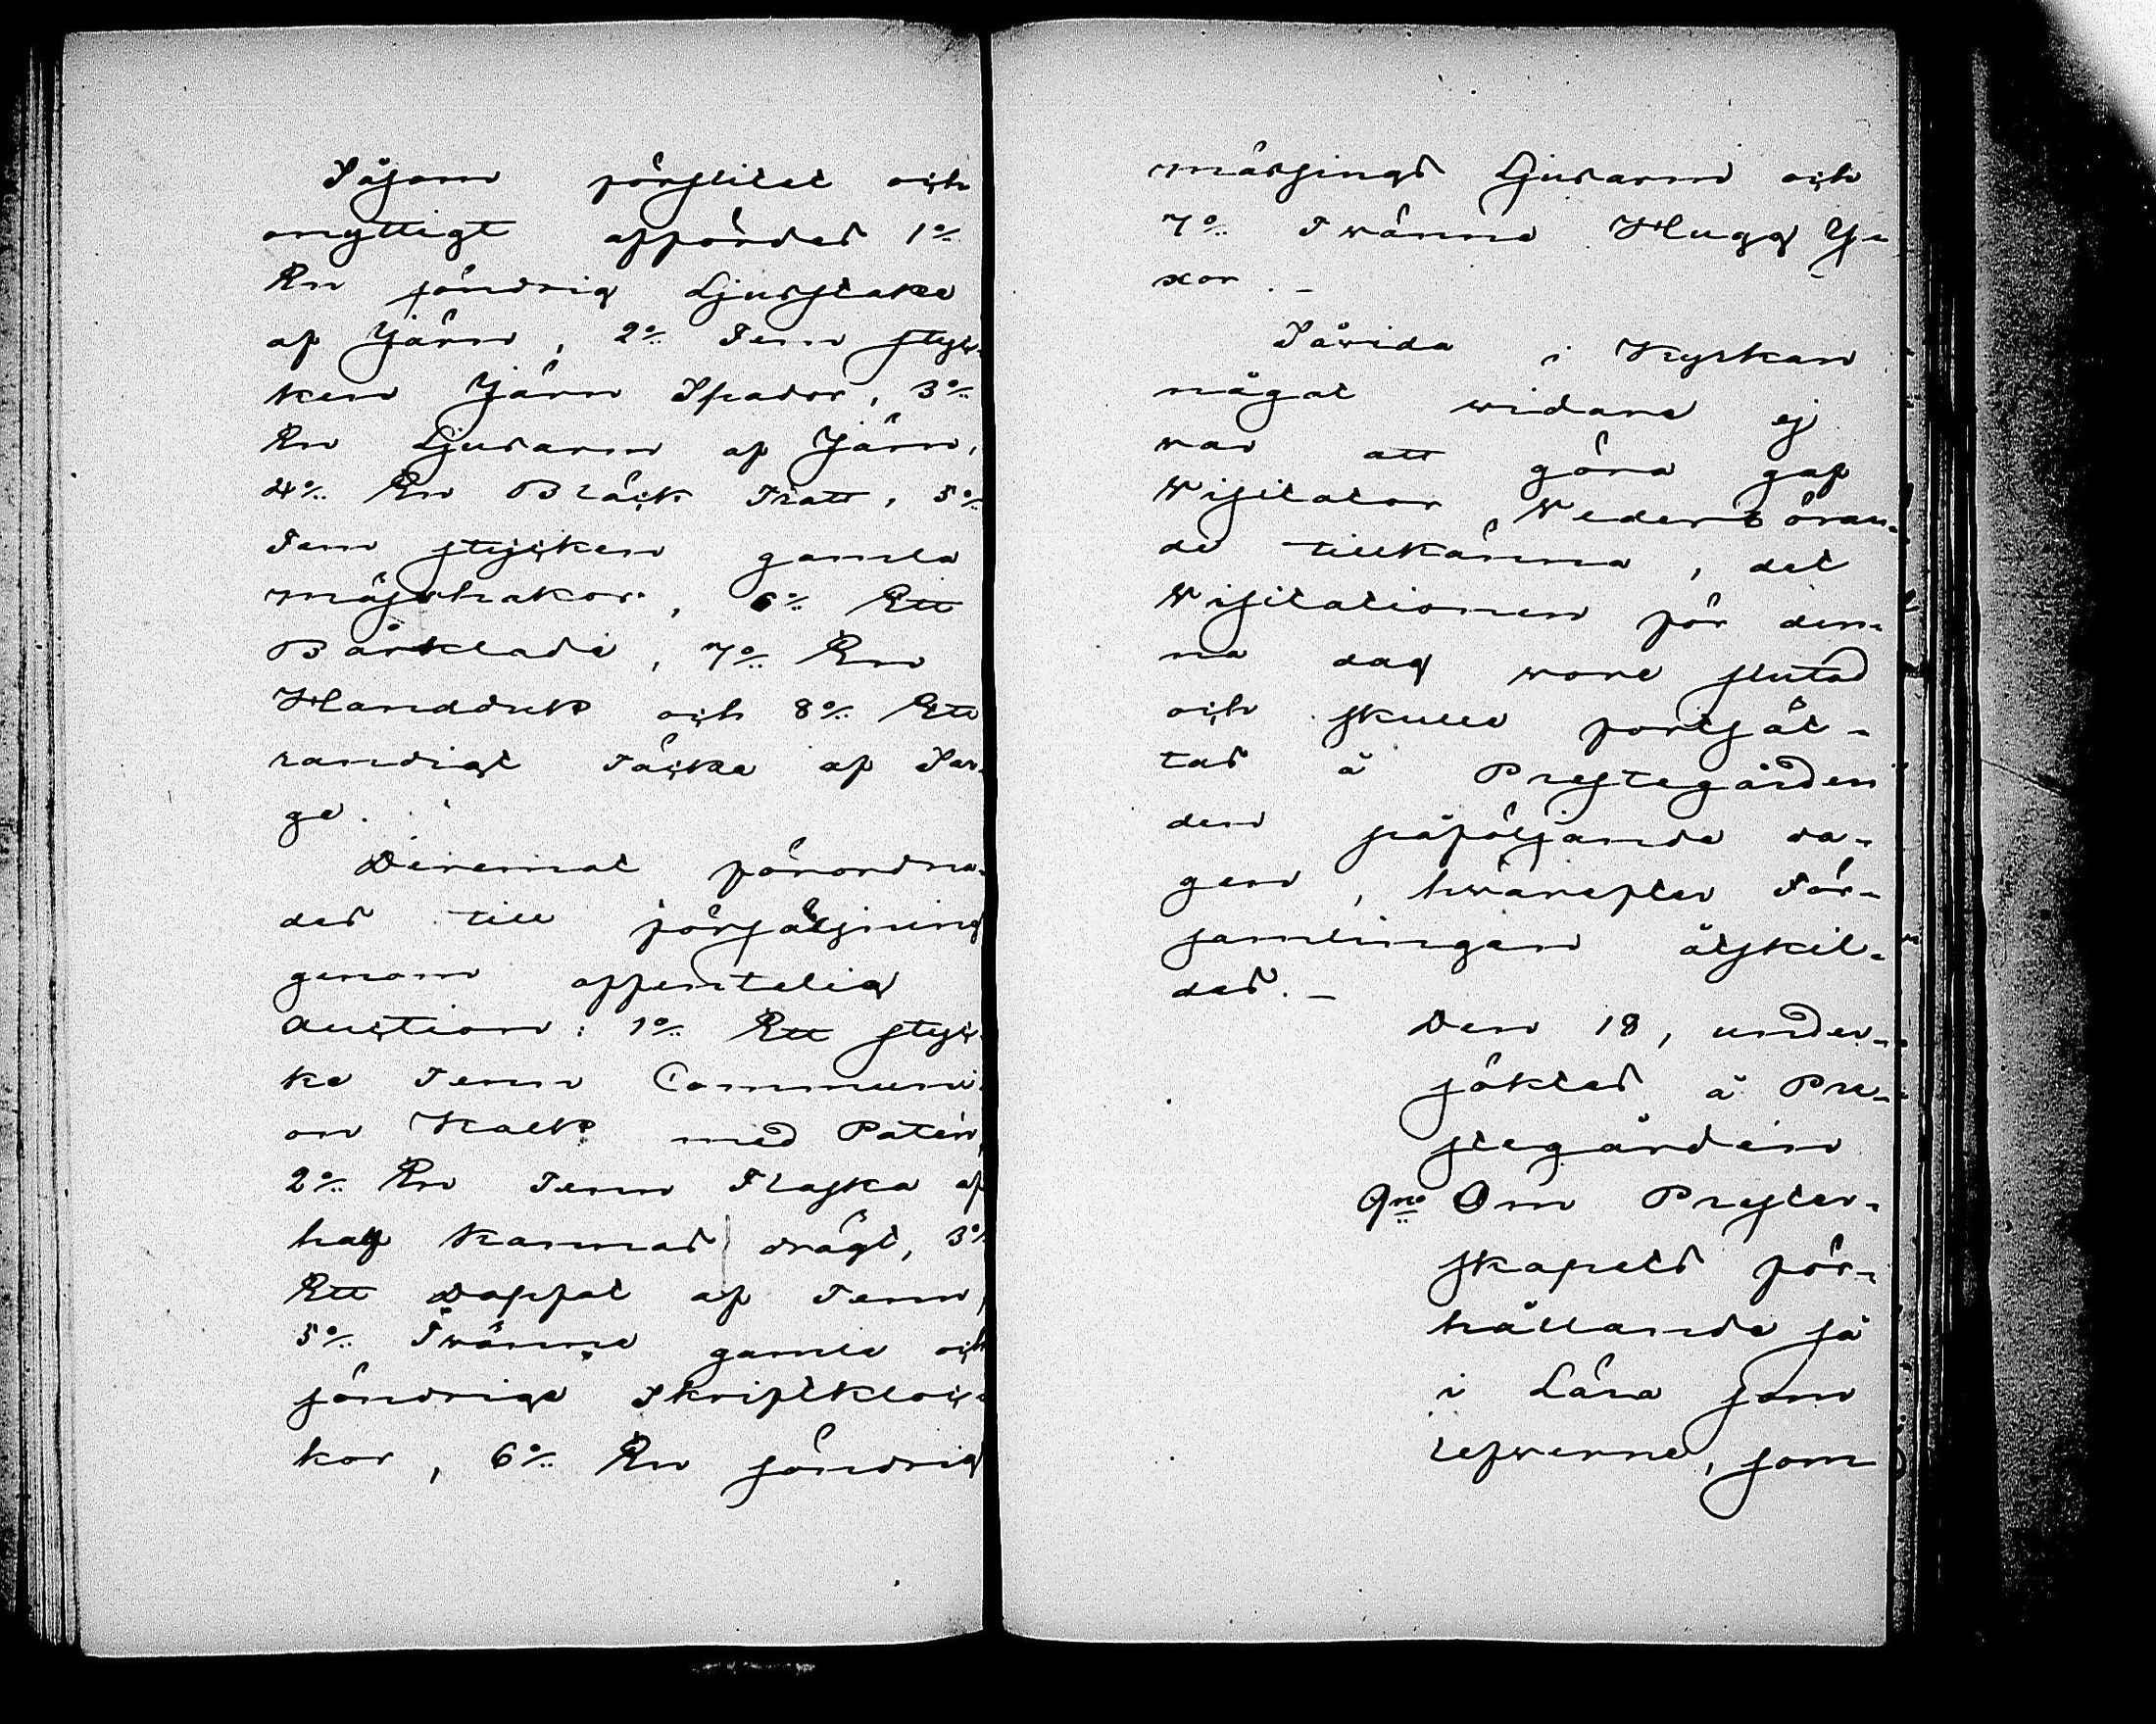 Såsom förslitet och
onyttigt affördes 1:o
En söndrig Ljusstake
af Järn, 2:o Fem styc-
ken Järn Spador, 3:o
En Ljusarm af Järn,
4:o En Bläck Tratt, 5:o
Fem stycken gamla
mässhakor, 6:o Ett
Bårkläde, 7:o En
Handduk och 8:o Ett
randigt Täcke af Sar-
ge.
Deremot förordna-
des till försäljning
genom offentelig
Auction: 1:o Ett styc-
ke Tenn Communi-
on Kalk med Patén,
2:o En Tenn Flaska af
half Kannas drägt, 3:o
Ett Doppat af Tenn,
5:o Twänne gamla och
söndriga Skriftkloc-
kor, 6:o En söndrig
mässings Ljusarm och
7:o Twänne Hugg Y-
xor. -
Såvida i Kyrkan
något widare ej
war att göra gaf
Wisitator Wederböran-
de tillkänna, det
Wisitationen för den-
na dag wore slutad
och skulle fortsät-
tas å Prestegården
den påföljande da-
gen, hwarefter För-
samlingen åtskil-
des. -
Den 18, under-
söktes å Pre-
stegården
9:no Om Prester-
skapets för-
hållande så
i Lära som
lefwerne, som